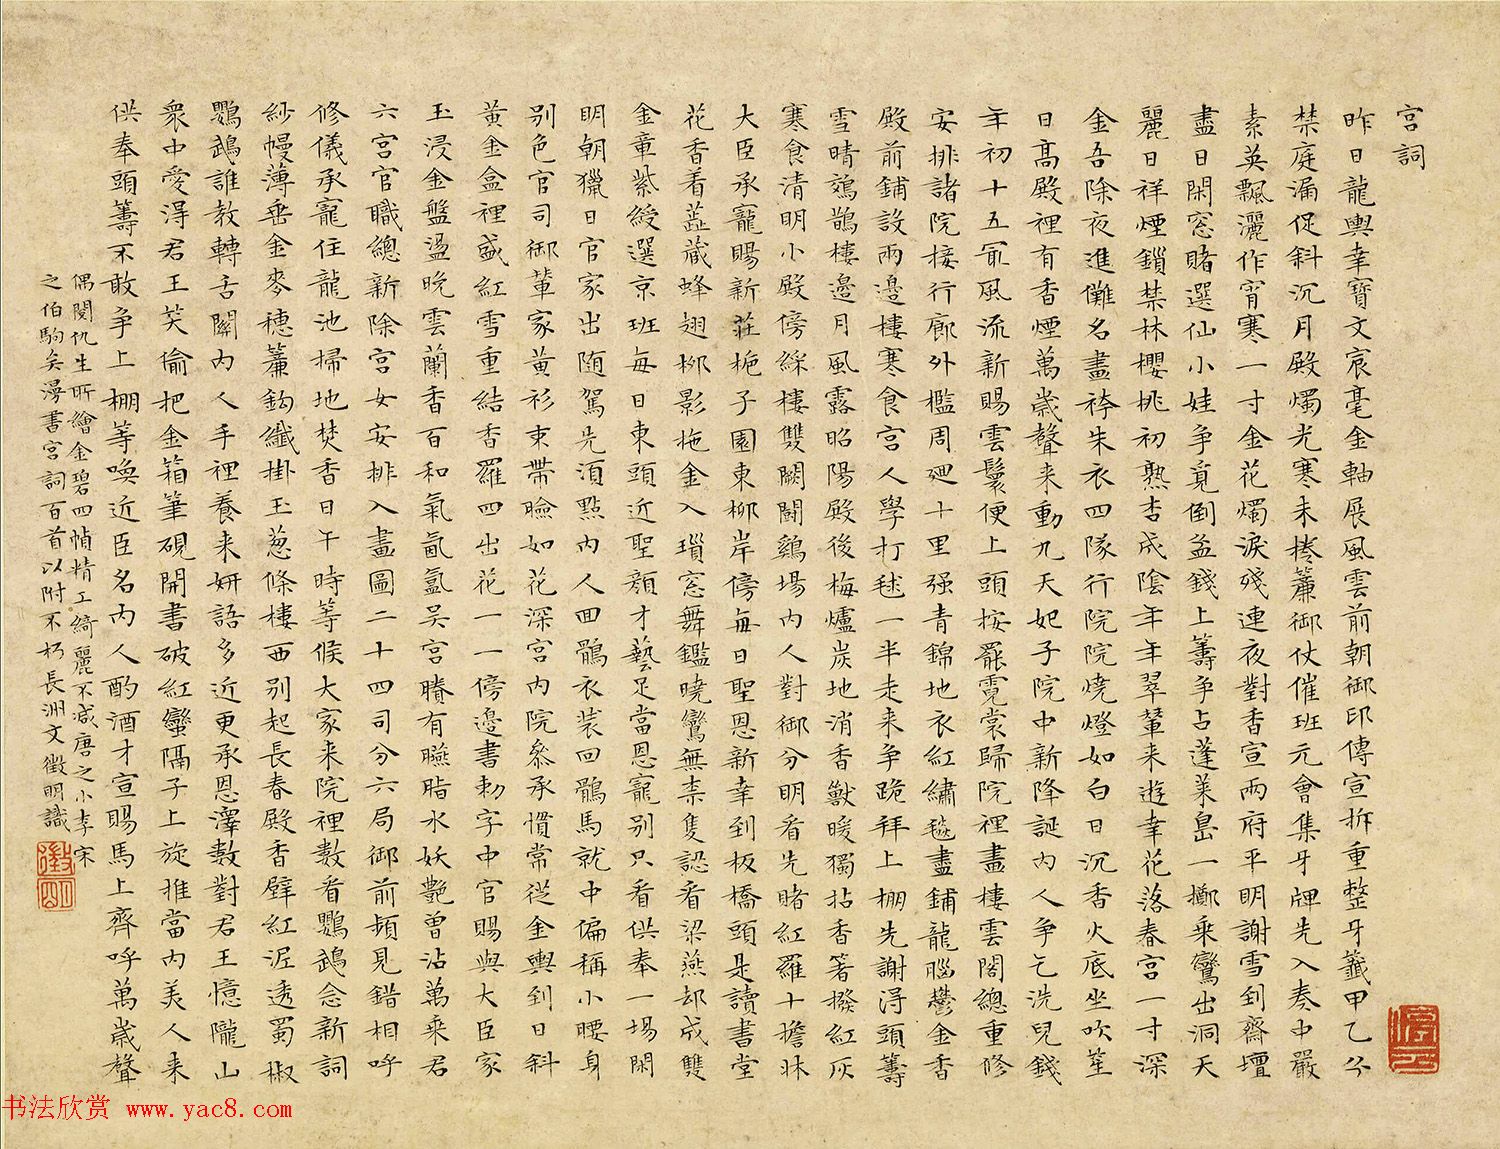 宮詞
昨日龍輿幸寶文宸毫金軸展風雲前朝御印傳宣拆重整牙籤甲乙分
禁庭漏促斜沉月殿燭光寒未捲簾御仗催班元會集牙牌先入奏中嚴
素英飄灑作宵寒一寸金花燭淚殘連夜對香宣兩府平明謝雪到齋壇
盡日閑窓賭選仙小娃争覓倒盆錢上籌争占蓬萊島一擲乘鸞出洞天
麗日祥煙鎖禁林櫻桃初熟杏成陰年年翠輦来遊幸花落春宮一寸深
金吾除夜進儺名畫袴朱衣四隊行院院燒燈如白日沉香火底坐吹笙
日高殿裡有香煙萬歲聲来動九天妃子院中新降誕内人争乞洗兒錢
年初十五最風流新賜雲鬟便上頭按罷霓裳歸院裡畫樓雲閣總重修
安排諸院接行廊外檻周廻十里强青錦地衣紅繡毯盡鋪龍腦鬱金香
殿前鋪設兩邊樓寒食宮人學打毬一半走来争跪拜上棚先謝得頭籌
雪晴鳷鵲樓邊月風露昭陽殿後梅爐炭地消香獸暖獨拈香箸撥紅灰
寒食清明小殿傍綵樓雙闕鬬鷄場内人對御分明看先賭紅羅十擔牀
大臣承寵賜新莊梔子園東柳岸傍每日聖恩新幸到板橋頭是讀書堂
花香着蕋蔵蜂翅柳影拖金入瑣窓舞鑑曉鸞無柰隻認看梁燕却成雙
金章紫綬選京班每日東頭近聖顔才藝足當恩寵别只看供奉一場閑
明朝獵日官家出随駕先湏點内人回鶻衣裝回鶻馬就中偏稱小腰身
别色官司御輦家黄衫束帶臉如花深宮内院叅承慣常從金輿到日斜
黄金盒裡盛紅雪重結香羅四出花一一傍邊書勅字中官賜與大臣家
玉浸金盤盪晚雲蘭香百和氣氤氳吴宮賸有臙脂水妖艷曾沾萬乘君
六宮官職總新除宮女安排入畫圖二十四司分六局御前頻見錯相呼
修儀承寵住龍池掃地焚香日午時等候大家来院裡數看鸚鵡念新詞
紗幔薄垂金麥穗簾鈎纖掛玉葱條樓西别起長春殿香壁紅泥透蜀椒
鸚鵡誰教轉舌關内人手裡養来妍語多近更承恩澤數對君王憶隴山
衆中愛得君王笑偷把金箱筆硯開書破紅蠻隔子上旋推當内美人来
供奉頭籌不敢争上棚等喚近臣名内人酌酒才宣賜馬上齊呼萬歲聲
偶閱仇生所繪金碧四幀精工綺麗不减唐之小李宋
之伯駒矣漫書宮詞百首以附不朽長洲文徵明識
徵明
停雲
书法欣赏 www.yac8.com